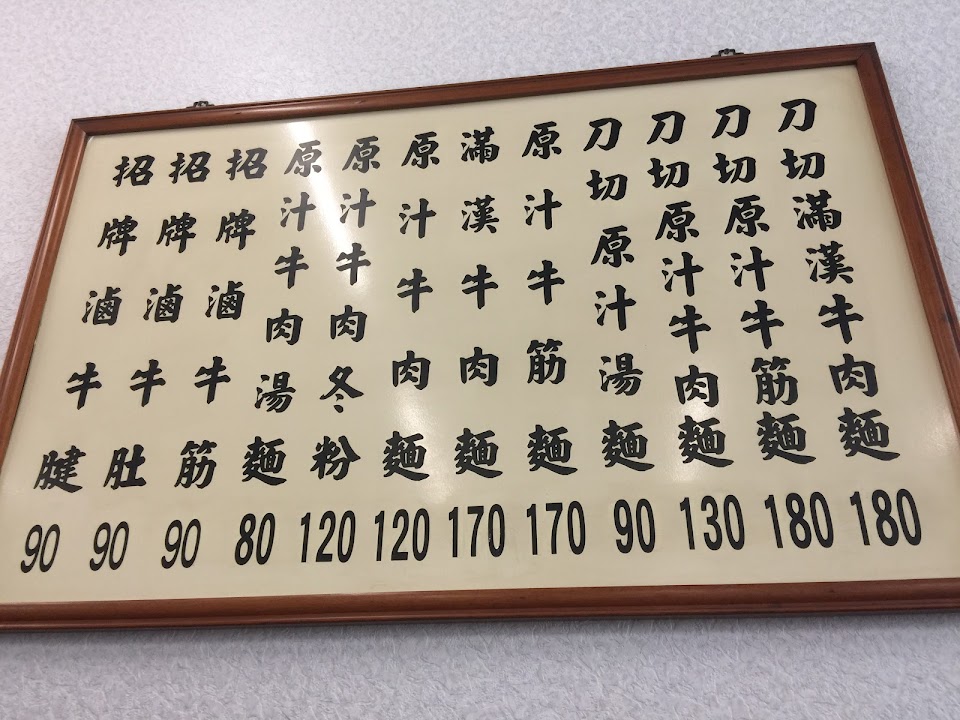 刀切滿漢牛肉麵 180
刀切原汁牛筋麵 180
刀切原汁牛肉麵 130
刀切原汁湯麵 90
原汁牛筋麵 170
滿漢牛肉麵 170
原汁牛肉麵 120
原汁牛肉冬粉 120
原汁牛肉湯麵 80
招牌滷牛筋 90
招牌滷牛肚 90
招牌滷牛腱 90